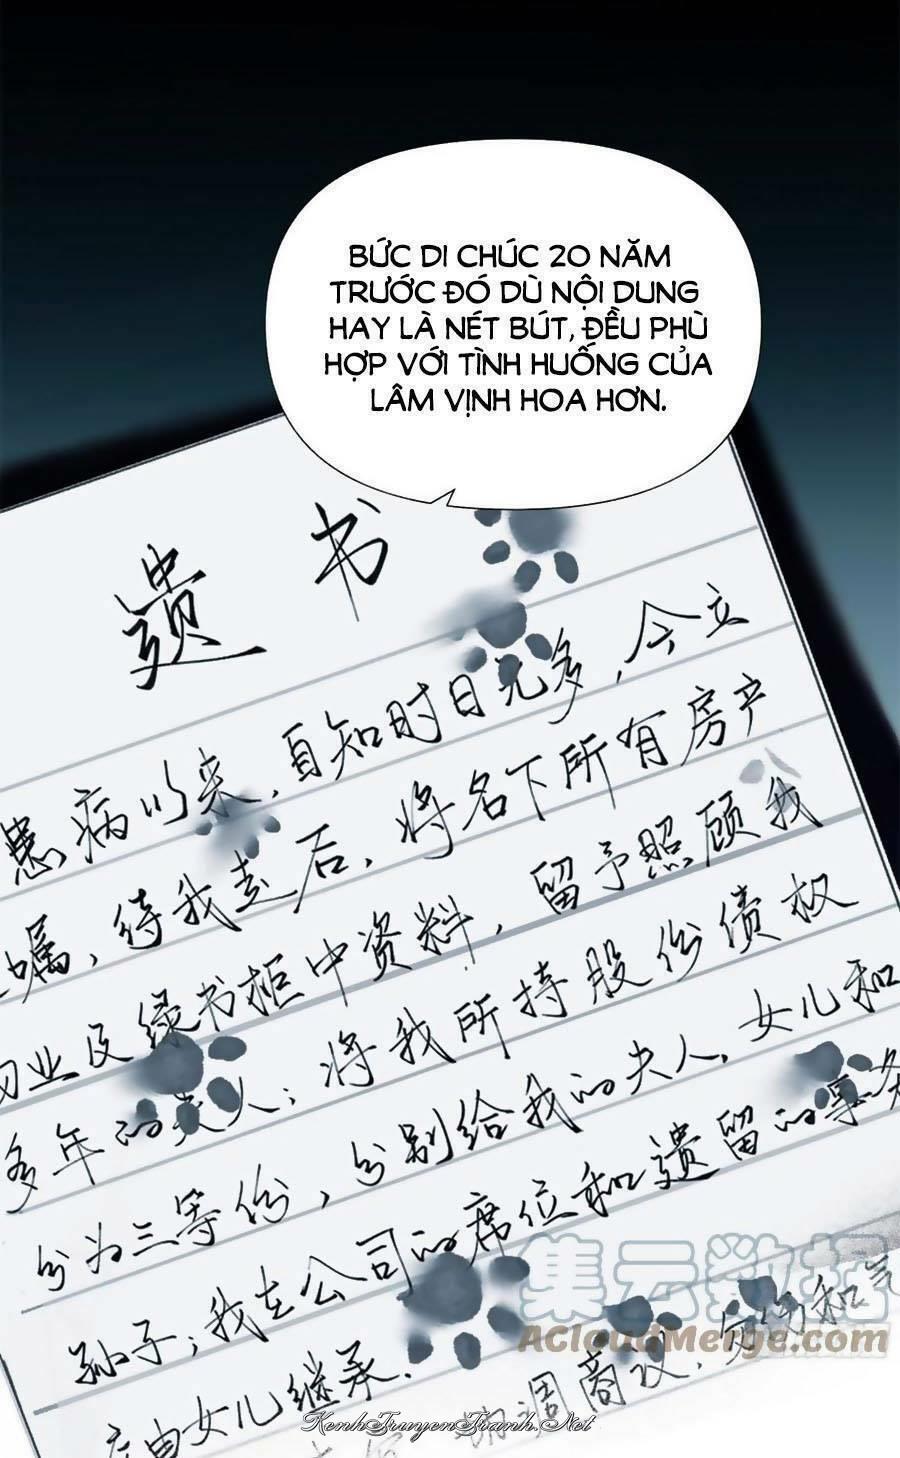 BỨC DI CHÚC 20 NĂM
TRƯỚC ĐÓ DÙ NỘI DUNG
HAY LÀ NÉT BÚT, ĐỀU PHÙ
HỢP VỚI TÌNH HUỐNG CỦA
LÂM VỊNH HOA HƠN.
遗书
患病以来，自知时日无多，今立
嘱，待我走后，将名下所有房产
物业及绿书柜中资料，留予照顾我
多年的夫人；将我所持股份债权
分为三等份，分别给我的夫人、女儿和
孙子；我在公司的席位和遗留的事务
由女儿继承。
集云数据
ACloudMerge.com
KenhTruyenTranh.Net